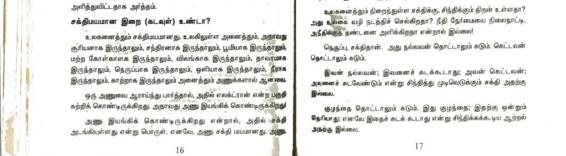 அளித்துவிட்டதாக அர்த்தம்.
சக்திமயமான இறை (கடவுள்) உண்டா?
உலகனைத்தும் சக்திமயமானது. உலகிலுள்ள அனைத்தும், அதாவது
சூரியனாக இருந்தாலும், சந்திரனாக இருந்தாலும், பூமியாக இருந்தாலும்,
மற்ற கோள்களாக இருந்தாலும், விலங்காக இருந்தாலும், தாவரமாக
இருந்தாலும், நெருப்பாக இருந்தாலும், ஒளியாக இருந்தாலும், நீராக
இருந்தாலும், காற்றாக இருந்தாலும் அனைத்தும் அணுக்களால் ஆனவை.
ஒரு அணுவை ஆராய்ந்து பார்த்தால், அதில் எலக்ட்ரான் என்ற பகுதி
சுற்றிக் கொண்டிருக்கிறது. அதாவது அணு இயங்கிக் கொண்டிருக்கிறது!
அணு இயங்கிக் கொண்டிருக்கிறது என்றால், அதில் சக்தி
அடங்கியுள்ளது என்று பொருள். எனவே, அணு சக்தி மயமானது. அணு
16
உலகனைத்தும் நிறைந்துள்ள சக்திக்கு, சிந்திக்கும் திறன் உள்ளதா?
அது உலகை வழி நடத்திச் செல்கிறதா? நீதி நேர்மையை நிலைநாட்டி,
அநீதிக்கு தண்டனை அளிக்கிறதா என்றால் இல்லை!
நெருப்பு சக்திதான். அது நல்லவன் தொட்டாலும் சுடும். கெட்டவன்
தொட்டாலும் சுடும்.
இவன் நல்லவன்; இவனைச் சுடக்கூடாது; அவன் கெட்டவன்;
அவனைச் சுடவேண்டும் என்று சிந்தித்து முடிவெடுக்கும் சக்தி அதற்கு
இல்லை.
குழந்தை தொட்டாலும் சுடும். இது குழந்தை; இதற்கு ஒன்றும்
தெரியாது; எனவே இதைச் சுடக் கூடாது என்று சிந்திக்கக்கூடிய ஆற்றல்
அதற்கு இல்லை.
17